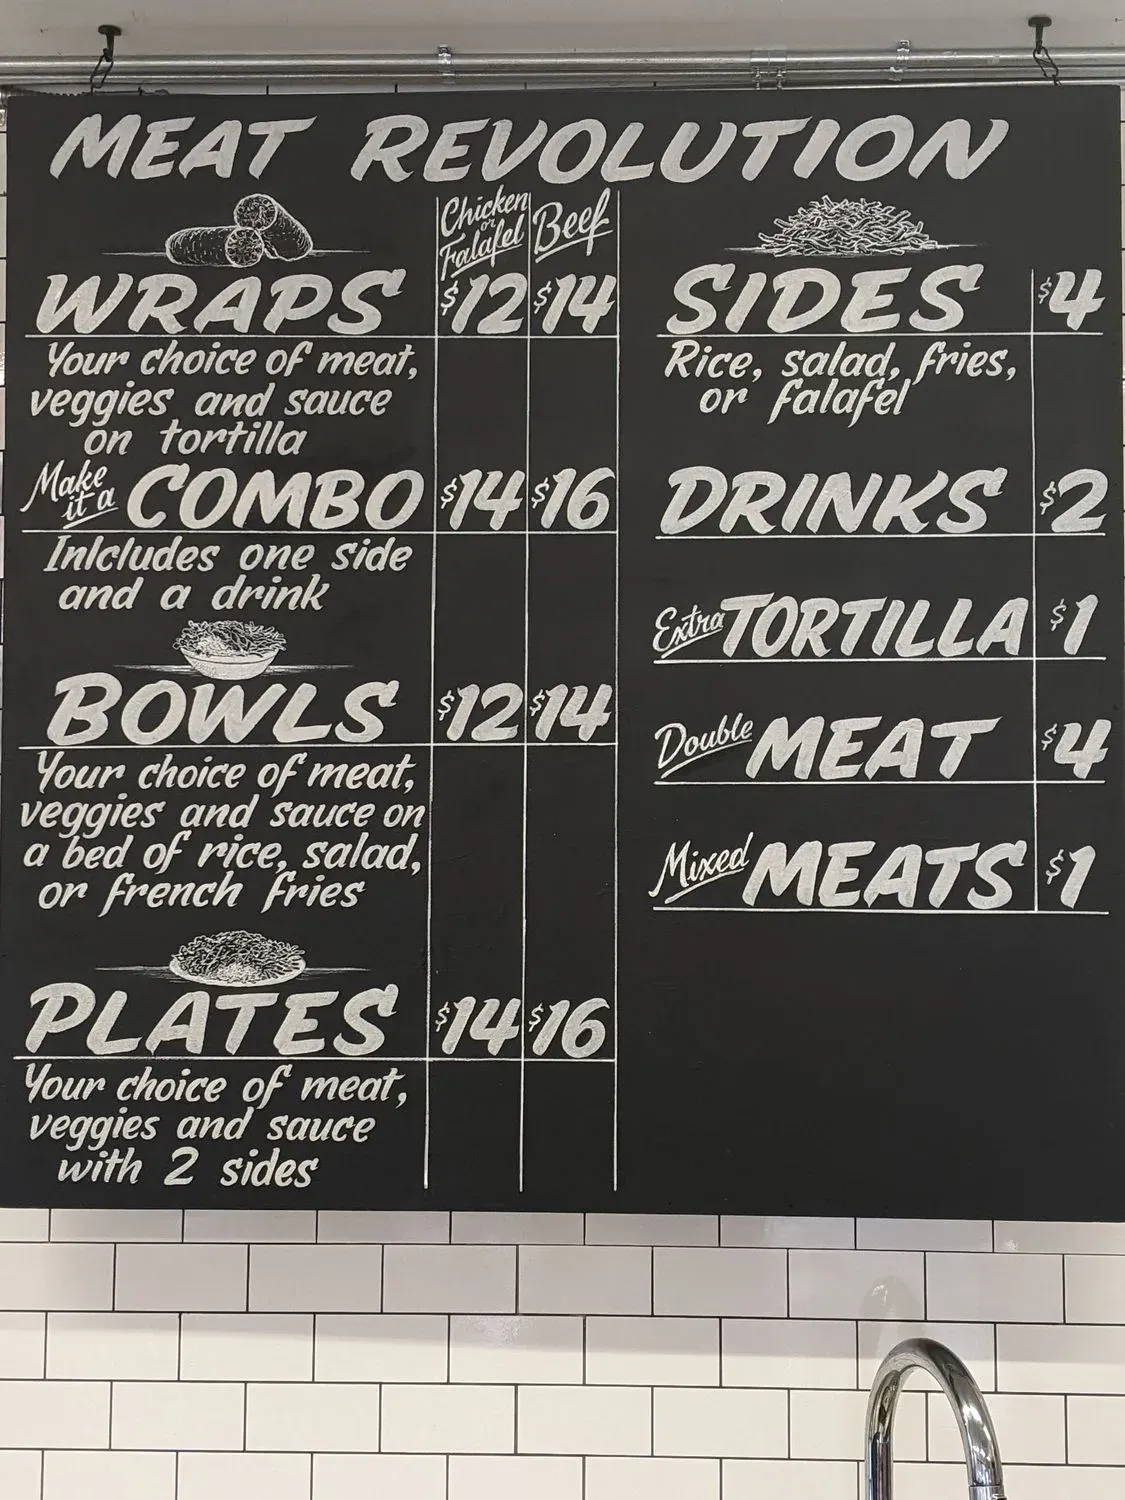 MEAT REVOLUTION
Chicken or Falafel
Beef
WRAPS $12 $14
Your choice of meat,
veggies and sauce
on tortilla
Make it a COMBO $14 $16
Inlcludes one side
and a drink
BOWLS $12 $14
Your choice of meat,
veggies and sauce on
a bed of rice, salad,
or french fries
PLATES $14 $16
Your choice of meat,
veggies and sauce
with 2 sides
SIDES $4
Rice, salad, fries,
or falafel
DRINKS $2
Extra TORTILLA $1
Double MEAT $4
Mixed MEATS $1